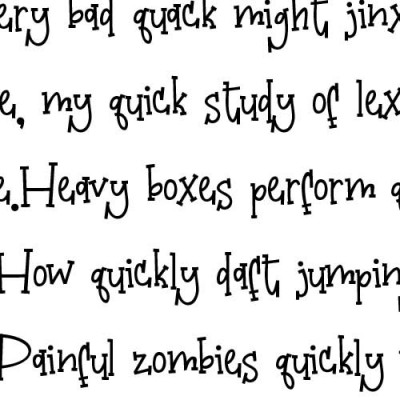 ery bad quack might jinx
e, my quick study of lex
e.Heavy boxes perform q
How quickly daft jumpin
Painful zombies quickly